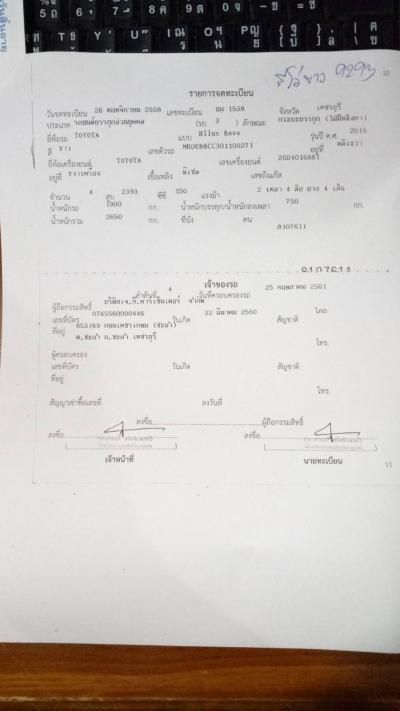 9293
10
รายการจดทะเบียน
วันจดทะเบียน 26 พฤศจิกายน 2558 เลขทะเบียน ผม 1538 จังหวัด เพชรบุรี
ประเภท รถยนต์บรรทุกส่วนบุคคล (รย. 3 ) ลักษณะ กระบะบรรทุก (ไม่มีหลังคา)
ยี่ห้อรถ TOYOTA แบบ Hilux Revo รุ่นปี ค.ศ. 2015
สี ขาว เลขตัวรถ MR0EB8CC301100271 อยู่ที่
ยี่ห้อเครื่องยนต์ TOYOTA เลขเครื่องยนต์ 2GD4015881
อยู่ที่ ขวาเครื่อง เชื้อเพลิง ดีเซล เลขถังแก๊ส
จำนวน 4 สูบ 2393 ซีซี 150 แรงม้า 2 เพลา 4 ล้อ ยาง 4 เส้น
น้ำหนักรถ 1900 กก. น้ำหนักบรรทุก/น้ำหนักลงเพลา 750 กก.
น้ำหนักรวม 2650 กก. ที่นั่ง คน
8107611
8107611
เจ้าของรถ
ลำดับที่ 4 วันที่ครอบครองรถ 25 พฤษภาคม 2561
ผู้ถือกรรมสิทธิ์
เลขที่บัตร 0765560000446 วันเกิด 22 มีนาคม 2560 สัญชาติ ไทย
ที่อยู่ 853/69 ถนนเพชรเกษม (ชะอำ)
ต.ชะอำ อ.ชะอำ เพชรบุรี โทร.
ผู้ครอบครอง
เลขที่บัตร วันเกิด สัญชาติ
ที่อยู่
โทร.
สัญญาเช่าซื้อเลขที่ ลงวันที่
ลงชื่อ ผู้ถือกรรมสิทธิ์
ลงชื่อ ลงชื่อ
เจ้าหน้าที่ นายทะเบียน
11